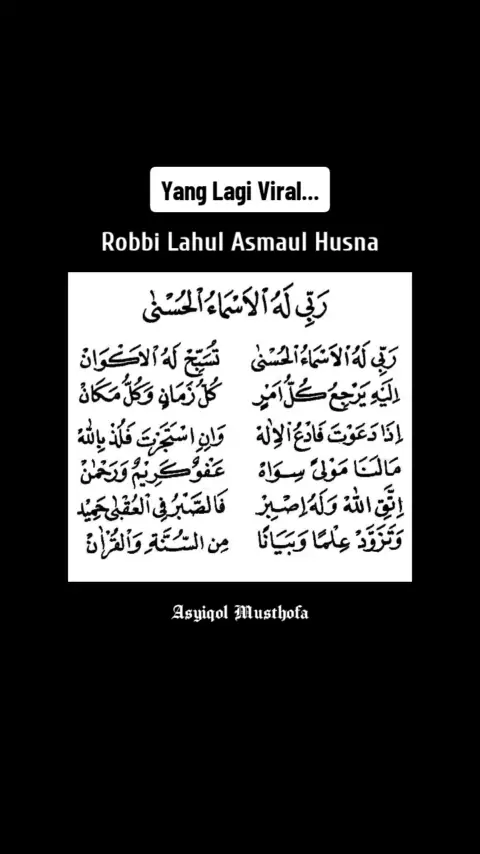 Yang Lagi Viral...
Robbi Lahul Asmaul Husna
رَبِّي لَهُ الْاَسْمَاءُ الْحُسْنٰى
رَبِّي لَهُ الْاَسْمَاءُ الْحُسْنٰى تُسَبِّحُ لَهُ الْاَكْوَانْ
اِلَيْهِ يَرْجِعُ كُلُّ اَمْرٍ كُلُّ زَمَانٍ وَكُلُّ مَكَانْ
اِذَا دَعَوْتَ فَادْعُ الْاِلٰهْ وَاِنِ اسْتَجَرْتَ فَلُذْ بِاللّٰهْ
مَالَنَا مَوْلًى سِوَاهْ عَفُوٌّ كَرِيْمٌ وَرَحْمٰنْ
اِتَّقِ اللّٰهَ وَلَهُ اِصْبِرْ فَالصَّبْرُ فِي الْعُقْبٰى حَمِيْد
وَتَزَوَّدْ عِلْمًا وَبَيَانًا مِنَ السُّنَّةِ وَالْقُرْاٰنْ
Asyiqol Musthofa